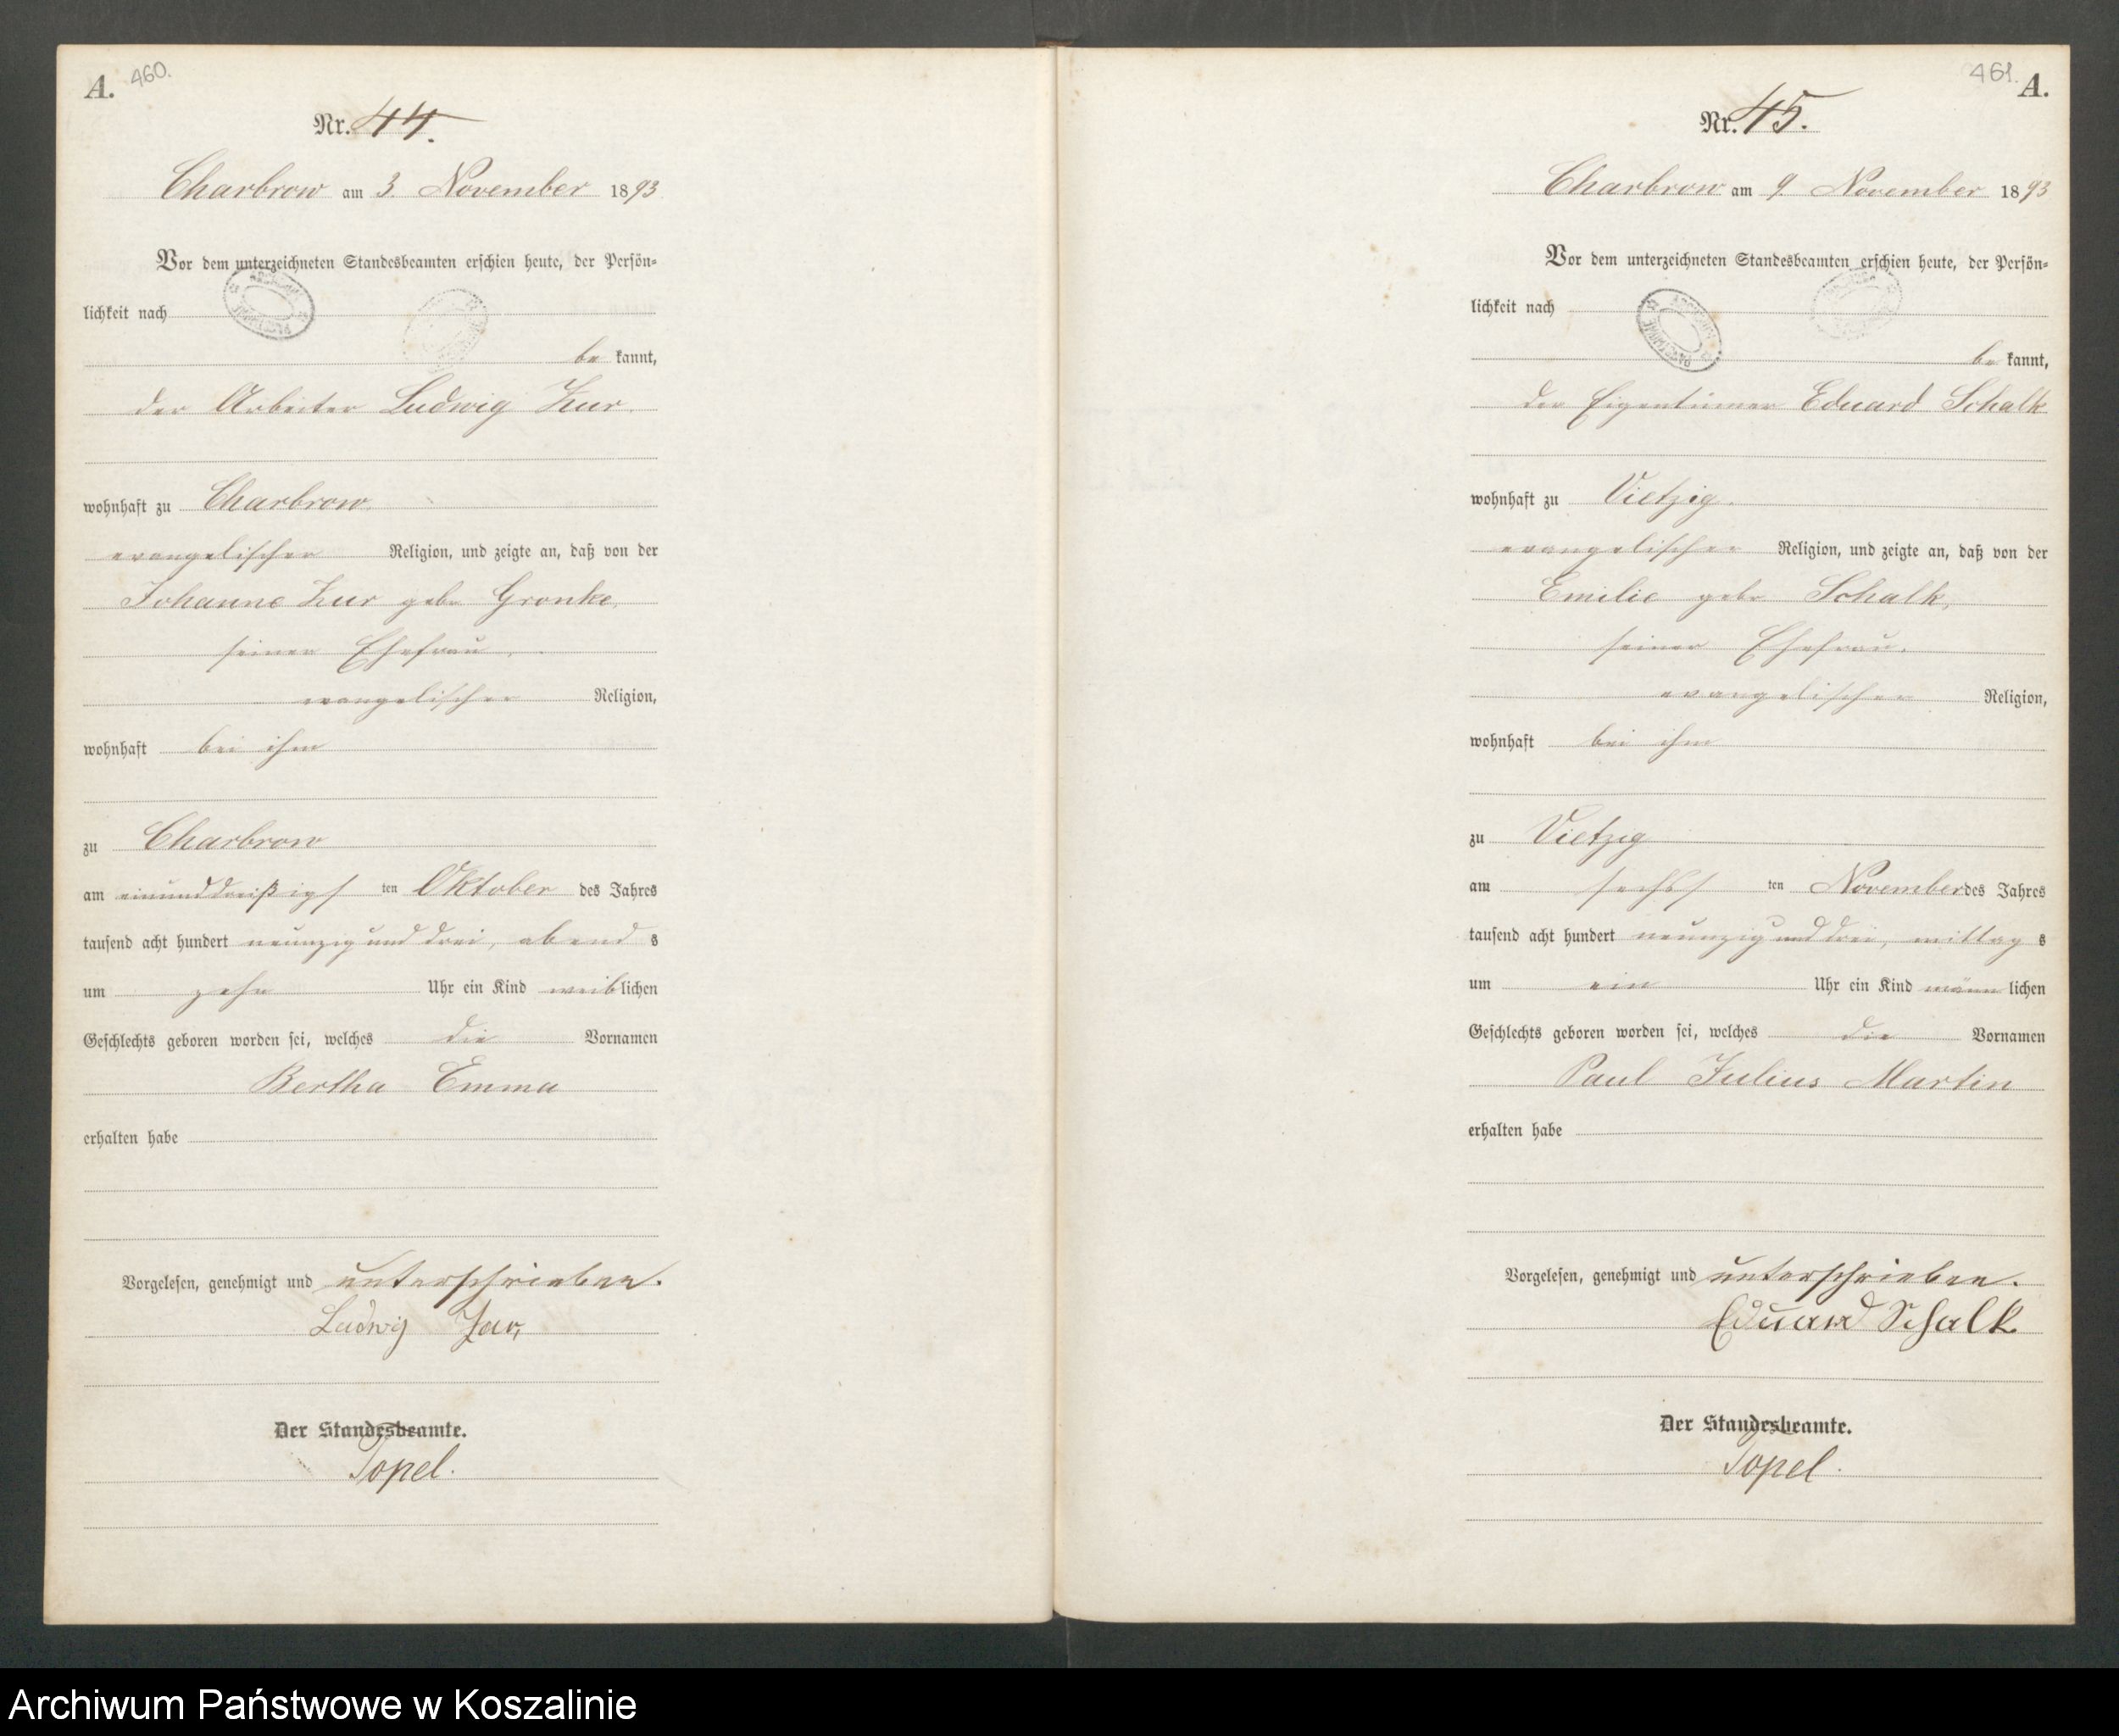 A. 460.
Nr. 44.
Charbrow am 3. November 1893
Vor dem unterzeichneten Standesbeamten erschien heute, der Persön=
lichkeit nach
be kannt,
der Arbeiter Ludwig Zur.
wohnhaft zu Charbrow.
evangelischer Religion, und zeigte an, daß von der
Johanne Zur geb. Gronke,
seiner Ehefrau,
evangelischer Religion,
wohnhaft bei ihm
zu Charbrow
am einunddreißigs ten Oktober des Jahres
tausend acht hundert neunzig und drei, abend s
um zehn Uhr ein Kind weiblichen
Geschlechts geboren worden sei, welches die Vornamen
Bertha Emma
erhalten habe
Vorgelesen, genehmigt und unterschrieben.
Ludwig Zur,
Der Standesbeamte.
Topel.
461. A.
Nr. 45.
Charbrow am 9. November 1893
Vor dem unterzeichneten Standesbeamten erschien heute, der Persön=
lichkeit nach
be kannt,
der Eigentümer Eduard Schalk
wohnhaft zu Vietzig.
evangelischer Religion, und zeigte an, daß von der
Emilie geb. Schalk,
seiner Ehefrau,
evangelischer Religion,
wohnhaft bei ihm
zu Vietzig
am sechs ten November des Jahres
tausend acht hundert neunzig und drei, mittag s
um ein Uhr ein Kind männ lichen
Geschlechts geboren worden sei, welches die Vornamen
Paul Julius Martin
erhalten habe
Vorgelesen, genehmigt und unterschrieben.
Eduard Schalk
Der Standesbeamte.
Topel.
Archiwum Państwowe w Koszalinie